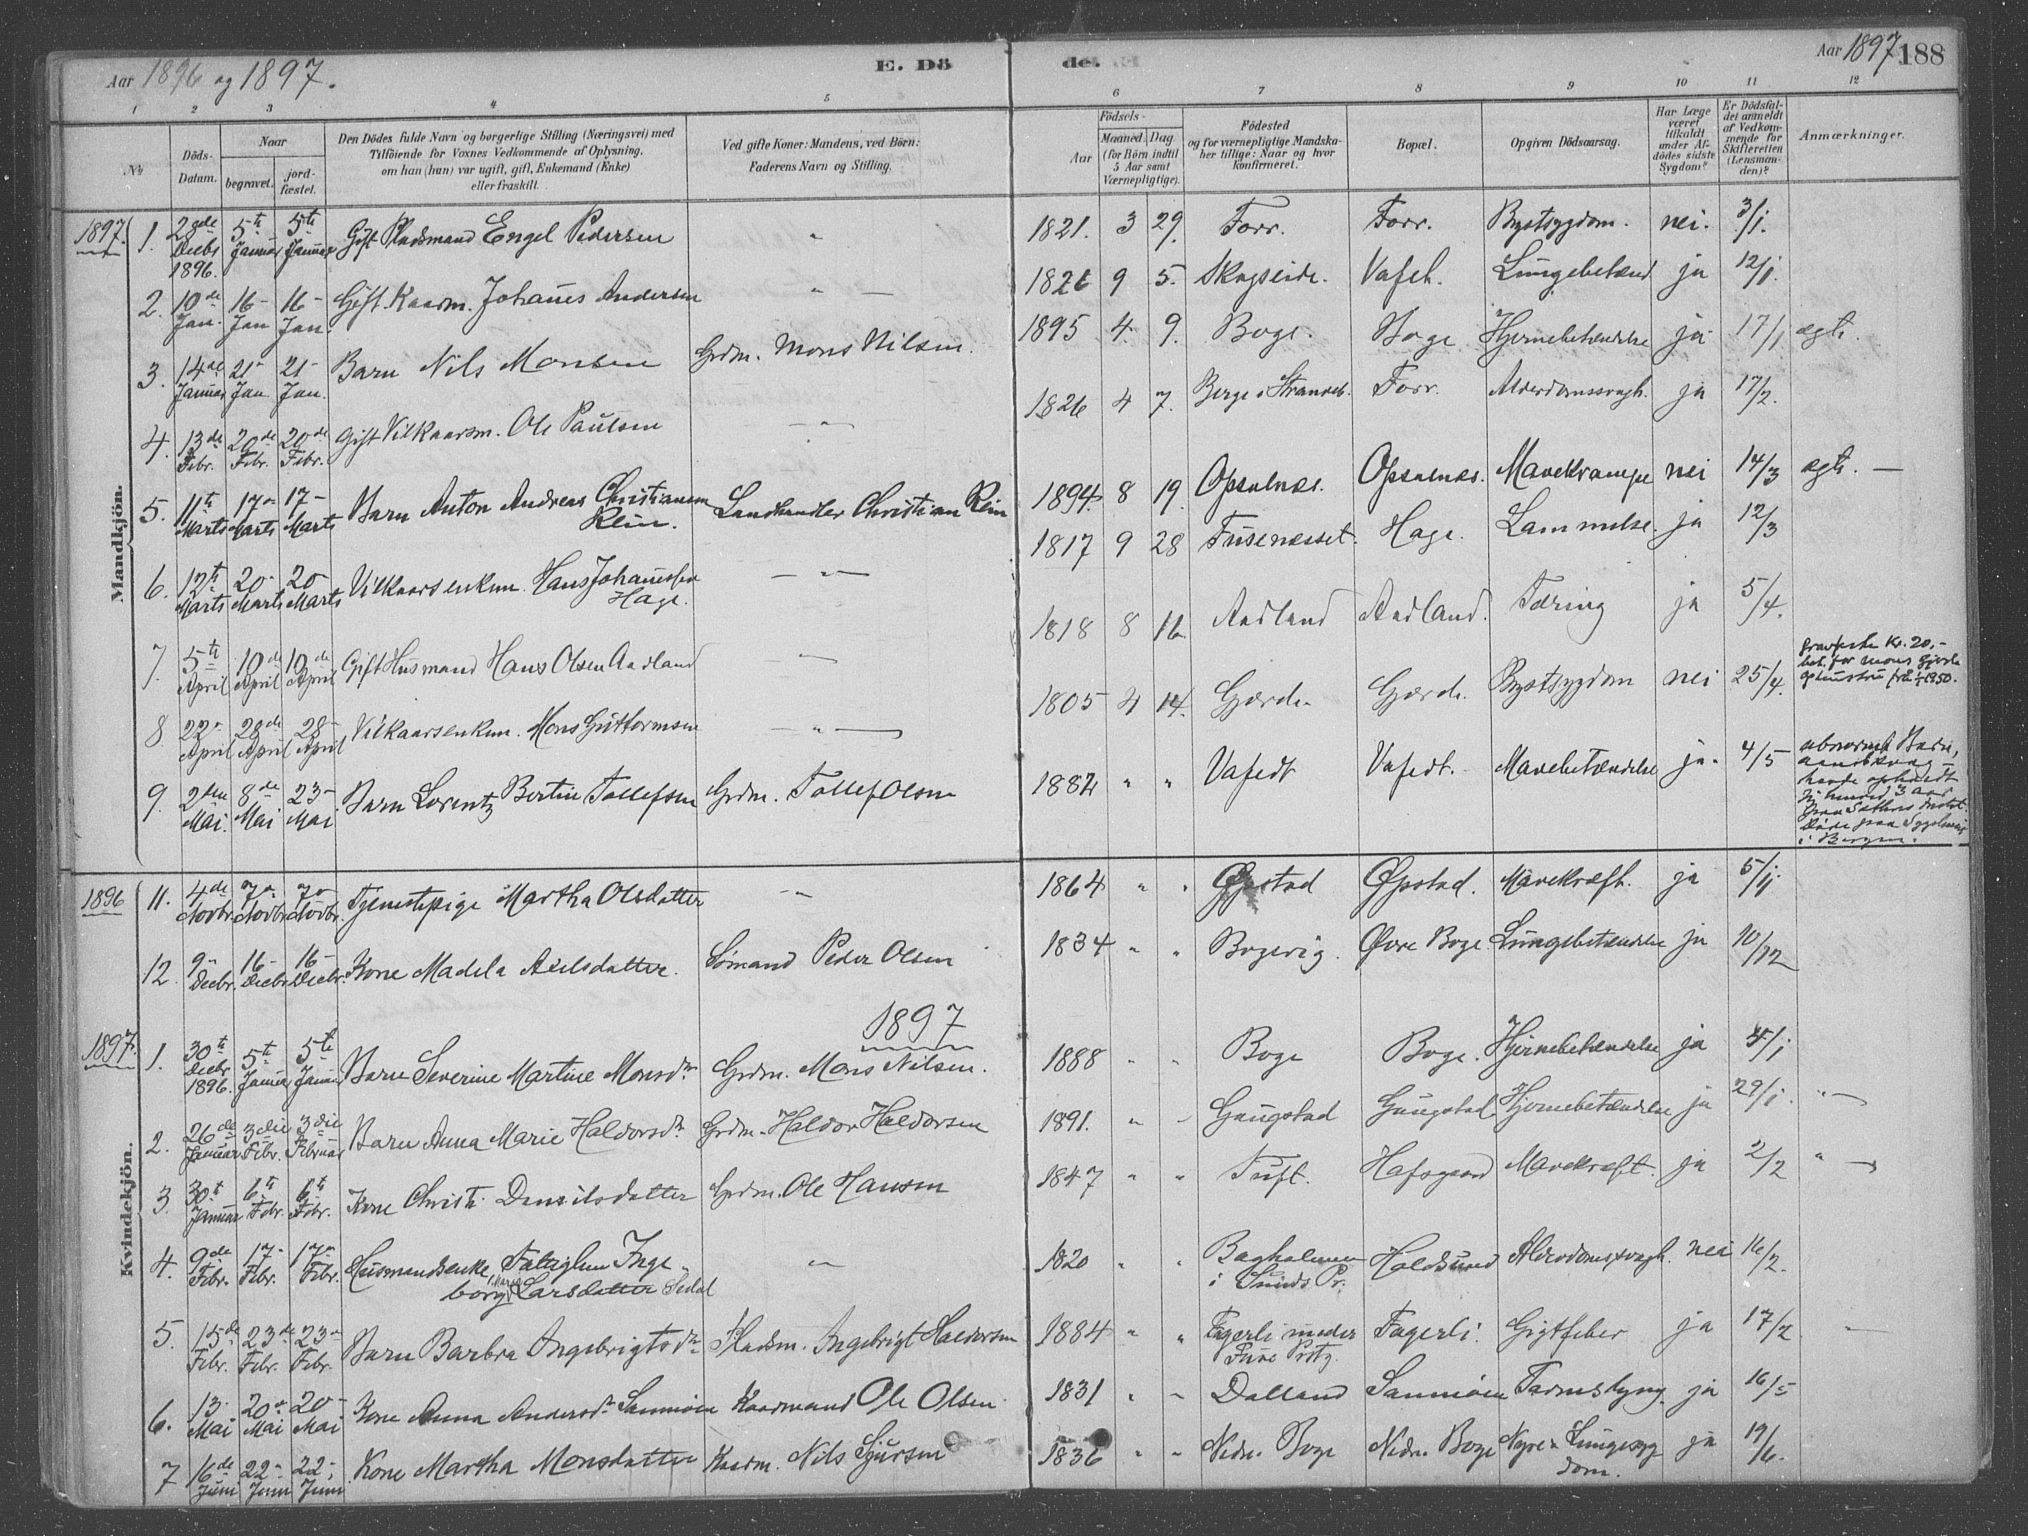 Aar 1896 og 1897.
E. Dö
de.
Aar 1897
188
1 2 3 4 5 6 7 8 9 10 11 12
No
Döds-
Datum.
Naar
begravet.
jord-
fæstet.
Den Dödes fulde Navn og borgerlige Stilling (Næringsvei) med
Tilföiende for Voxnes Vedkommende af Oplysning,
om han (hun) var ugift, gift, Enkemand (Enke)
eller fraskilt.
Ved gifte Koner: Mandens, ved Börn:
Faderens Navn og Stilling.
Födsels-
Aar
Maaned. Dag.
(for Börn indtil
5 Aar samt
Værnepligtige).
Födested
og for værnepligtige Mandska-
ber tillige: Naar og hvor
konfirmeret.
Bopæl.
Opgiven Dödsaarsag.
Har Læge
været
tilkaldt
under Af-
dödes sidste
Sygdom?
Er Dödsfal-
det anmeldt
af Vedkom-
mende for
Skifteretten
(Lensman-
den)?
Anmærkninger.
Mandkjön.
1897. 1. 28de Decbr 1896. 5te Januar 5te Januar Gift Pladsmand Engel Pedersen " 1821. 3 29. Forr. Forr. Brystsygdom. nei. 3/1.
2. 10de Jan. 16 - Jan 16 - Jan. Gift. Kaarm. Johanes Andersen " 1826 9 5. Skogseide. Lungebetænd ja 12/1.
3. 14de Januar 21 - Jan 21 - Jan. Barn Nils Monsen Grdm. Mons Nilsen. 1895 4. 9. Boge. Boge Hjernebetændelse ja 17/1 ægte.
4. 13de Febr. 20de Febr. 20de Febr. Gift Vilkaarsm. Ole Paulsen " 1826 4 7. Berge i Strandeb. Forr. Alderdomssvagh. ja 17/2.
5. 11te Marts 17 - Marts 17 - Marts Barn Anton Andreas Christiansen Rein. Landhandler Christian Rein 1894. 8 19. Opsalnæs. Opsalnæs. Mavekrampe nei 14/3 ægte. -
6. 12te Marts 20 - Marts 20 - Marts Vilkaarsenkem. Hans Johannessen Hage. " 1817 9 28 Fusenesset. Hage. Lammelse. ja 12/3
7. 5te April 10de April 10de April Gift Husmand Hans Olsen Aadland " 1818 8 16 Aadland Aadland. Tæring ja 5/4.
8. 22 - April 28de April 28 - April Vilkaarsenkem. Mons Guttormsen " 1805 4 14. Gjerde. Gjerde. Brystsygdom nei 25/4. gravfeste Kr. 20,- bet. for Mons Gjerde
9. 2den Mai. 8de Mai 23 - Mai Barn Lorentz Bertin Tollefsen Grdm. Tollef Olsen 1882 " " Mavebetændelse ja. 4/5 abnormt Barn, i Bergen.
Kvindekjön.
1896 11. 4de Novbr. 7 - Novbr. 7 - Novbr. Tjenestepige Martha Olsdatter " 1864 " " Øpstad Øpstad. Mavekræft. ja 5/11
12. 9 - Decbr. 16 - Decbr. 16 - Decbr. Kone Madela Axelsdatter. Sömand Peder Olsen 1834 " " Bogevig. Øvre Boge Lungebetændelse ja 10/12
1897
1897. 1. 30te Decbr 1896. 5te Januar 5te Januar Barn Severine Martine Monsdr. Grdm. Mons Nilsen. 1888 " " Boge Boge. Hjernebetændelse ja 4/1
2. 26de Januar 3die Febr. 3die Februar Barn Anna Marie Haldorsdr. Grdm. Haldor Haldorsen 1891. " " Gaugstad Gaugstad Hjernebetændelse ja 29/1. " -
3. 30te Januar 6te Febr. 6te Febr. Kone Christi Danielsdatter Grdm. Ole Hansen 1847 " " Tuft. Hafsgaard Mavekræft. ja 2/2 " -
4. 9de Febr. 17 - Febr. 17 - Febr. Husmandsenke, Fattiglem Inge- borg Marie Larsdatter " 1820 " " Bagholmen i Sunds Pr. Holdsund Alderdomssvagh. nei 16/2.
5. 15de Febr. 23de Febr. 23 - Febr. Barn Barbra Ingebrigtsdr. Pladsm. Ingebrigt Haldorsen 1884 " " Fagerli under Fagerli. Gigtfeber ja 17/2 -
6. 13. Mai 20de Mai 20 - Mai Kone Anna Andersdr. Sanmöen Kaarmand Ole Olsen. 1831 " " Dalland Sanmöen Tarmslyng ja 16/5
7 16de Juni 22 - Juni 22 - Juni Kone Martha Monsdatter Kaarm. Nils Sjursen 1836 " " Nedre Boge Nedre Boge Nyre & Lungesyg dom. ja 19/6.